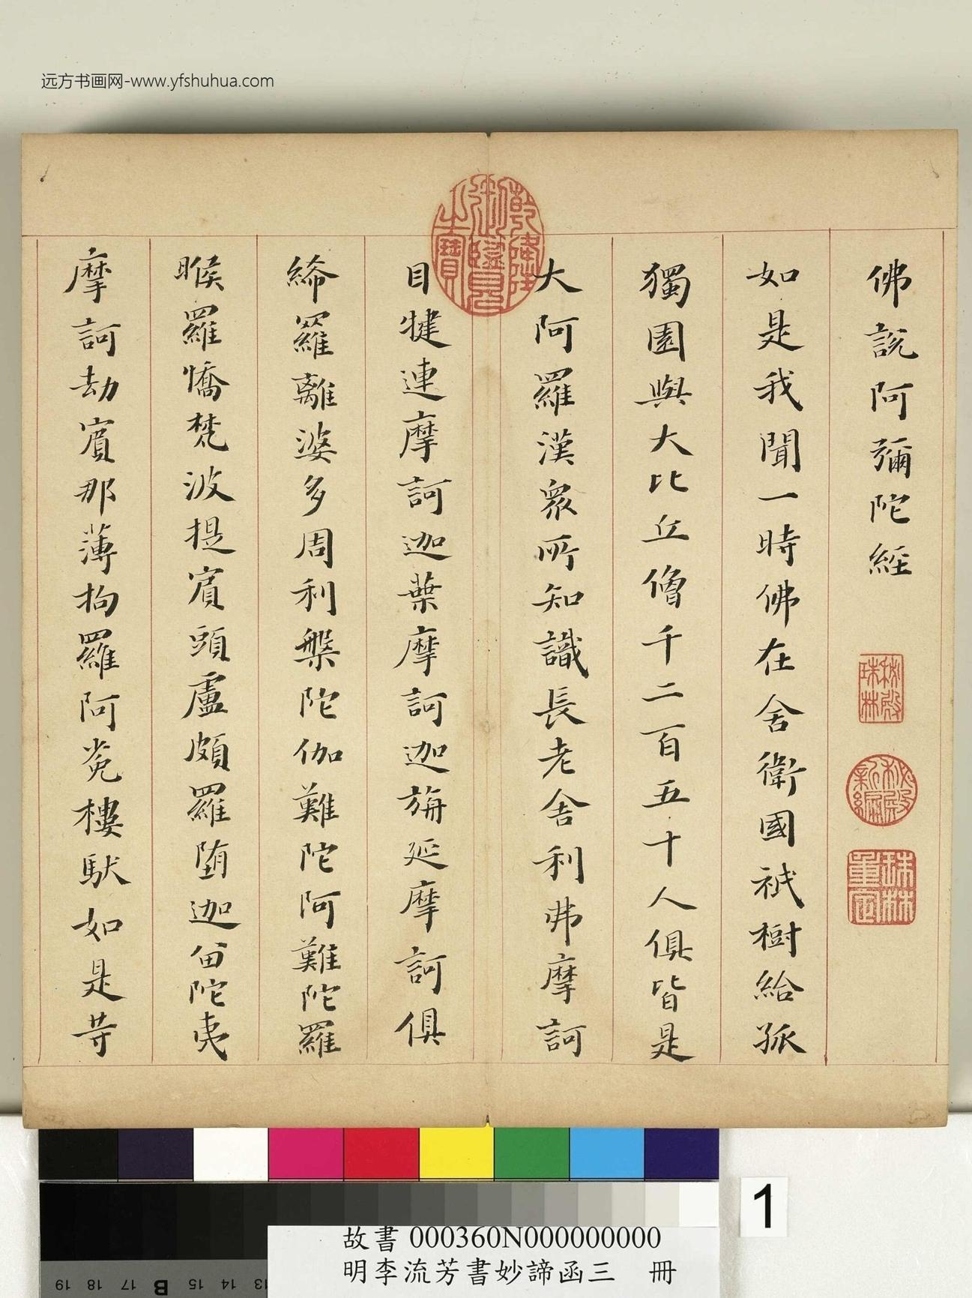 远方书画网-www.yfshuhua.com
佛說阿彌陀經
如是我聞一時佛在舍衛國祇樹給孤
獨園與大比丘僧千二百五十人俱皆是
大阿羅漢衆所知識長老舍利弗摩訶
目犍連摩訶迦葉摩訶迦旃延摩訶俱
絺羅離婆多周利槃陀伽難陀阿難陀羅
睺羅憍梵波提賓頭盧頗羅堕迦留陀夷
摩訶劫賓那薄拘羅阿㝹樓馱如是等
乾隆御覽之寶
秘殿珠林
秘殿新編
珠林重定
1
故書 000360N000000000
明李流芳書妙諦函三 冊
19 18 17 B 15 14 13